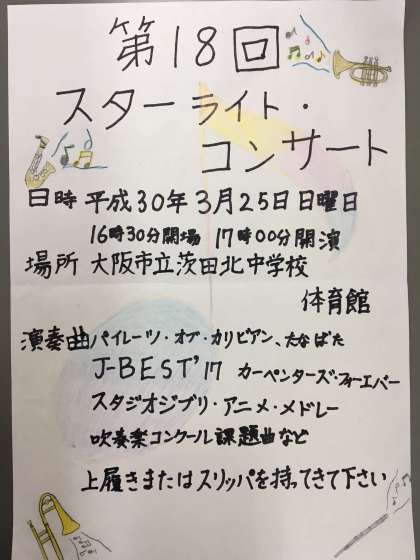 第18回
スターライト・
コンサート
日時 平成30年3月25日日曜日
16時30分開場 17時00分開演
場所 大阪市立茨田北中学校
体育館
演奏曲 パイレーツ・オブ・カリビアン、たなばた
J-BEST'17 カーペンターズ・フォーエバー
スタジオジブリ・アニメ・メドレー
吹奏楽コンクール課題曲など
上履きまたはスリッパを持ってきて下さい